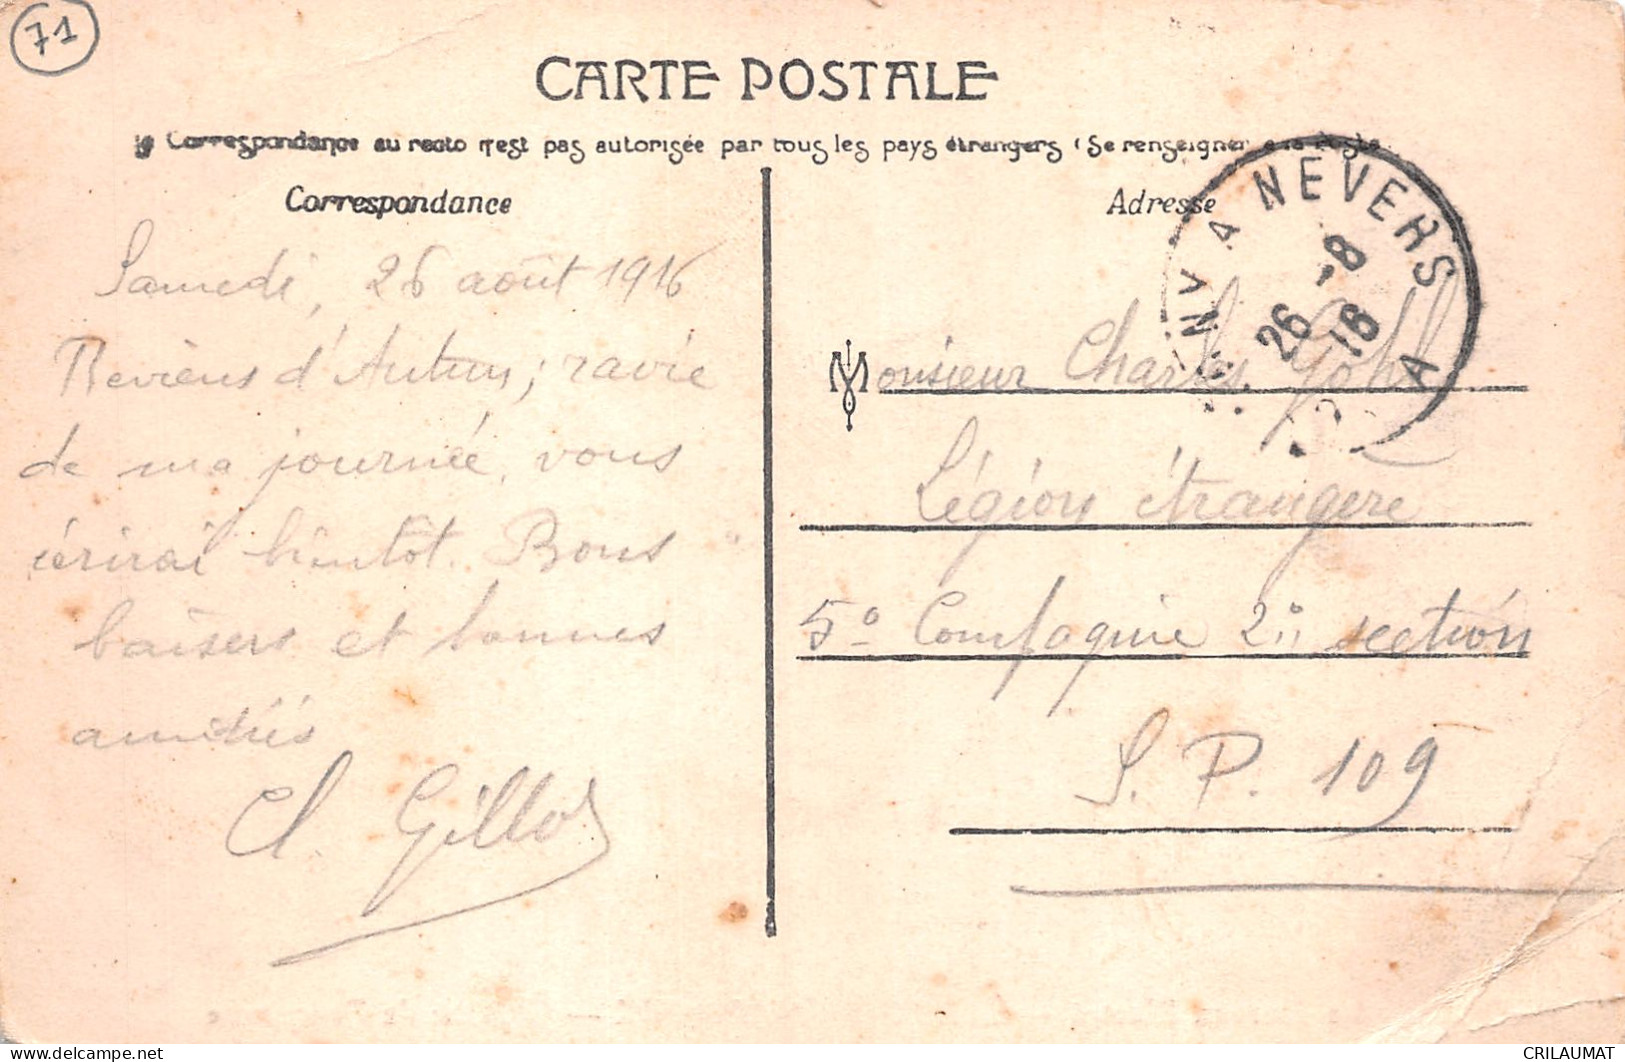 71
CARTE POSTALE
la Correspondance au recto n'est pas autorisée par tous les pays étrangers (Se renseigner à la Poste
Correspondance
Samedi, 26 août 1916
Reviens d'Autun; ravie
de ma journée, vous
écrirai bientôt. Bons
baisers et bonnes
amitiés
Cl. Gillot
Adresse
A NEVERS
26 -8
16
A
Monsieur Charles
Légion étrangère
5e Compagnie 2e section
S. P. 109
delcampe.net
CRILAUMAT